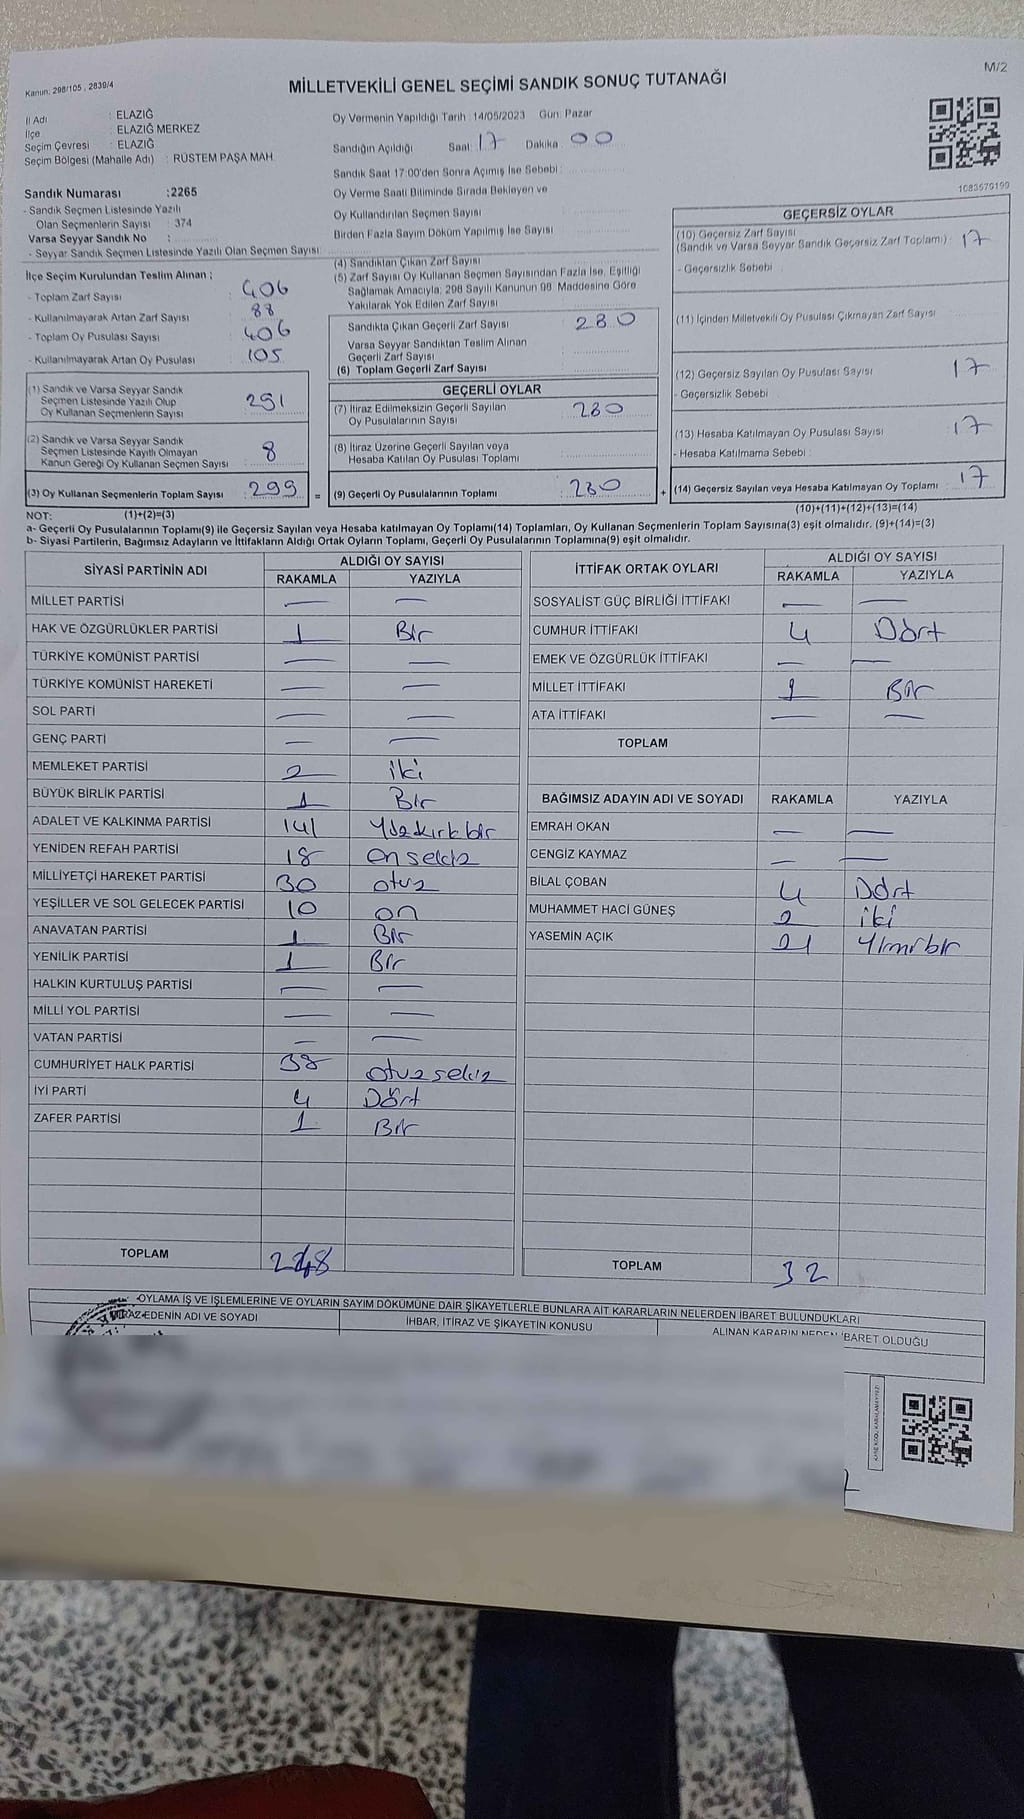 Kanun: 298/105, 2839/4
MİLLETVEKİLİ GENEL SEÇİMİ SANDIK SONUÇ TUTANAĞI
M/2
İl Adı : ELAZIĞ
İlçe : ELAZIĞ MERKEZ
Seçim Çevresi : ELAZIĞ
Seçim Bölgesi (Mahalle Adı) : RÜSTEM PAŞA MAH.
Oy Vermenin Yapıldığı Tarih :14/05/2023 Gün: Pazar
Sandığın Açıldığı Saat 17 Dakika 00
Sandık Saat 17:00'den Sonra Açımış İse Sebebi:
Oy Verme Saati Bitiminde Sırada Bekleyen ve
Oy Kullandırılan Seçmen Sayısı
Birden Fazla Sayım Döküm Yapılmış İse Sayısı
1083579199
Sandık Numarası :2265
- Sandık Seçmen Listesinde Yazılı
Olan Seçmenlerin Sayısı : 374
Varsa Seyyar Sandık No :
- Seyyar Sandık Seçmen Listesinde Yazılı Olan Seçmen Sayısı
İlçe Seçim Kurulundan Teslim Alınan ;
- Toplam Zarf Sayısı : 406
- Kullanılmayarak Artan Zarf Sayısı : 88
- Toplam Oy Pusulası Sayısı : 406
- Kullanılmayarak Artan Oy Pusulası : 105
(1) Sandık ve Varsa Seyyar Sandık
Seçmen Listesinde Yazılı Olup
Oy Kullanan Seçmenlerin Sayısı : 291
(2) Sandık ve Varsa Seyyar Sandık
Seçmen Listesinde Kayıtlı Olmayan
Kanun Gereği Oy Kullanan Seçmen Sayısı : 8
(3) Oy Kullanan Seçmenlerin Toplam Sayısı : 299 =
(4) Sandıktan Çıkan Zarf Sayısı
(5) Zarf Sayısı Oy Kullanan Seçmen Sayısından Fazla İse, Eşitliği
Sağlamak Amacıyla; 298 Sayılı Kanunun 98. Maddesine Göre
Yakılarak Yok Edilen Zarf Sayısı
Sandıkta Çıkan Geçerli Zarf Sayısı : 280
Varsa Seyyar Sandıktan Teslim Alınan
Geçerli Zarf Sayısı
(6) Toplam Geçerli Zarf Sayısı
GEÇERLİ OYLAR
(7) İtiraz Edilmeksizin Geçerli Sayılan
Oy Pusulalarının Sayısı : 280
(8) İtiraz Üzerine Geçerli Sayılan veya
Hesaba Katılan Oy Pusulası Toplamı
(9) Geçerli Oy Pusulalarının Toplamı : 280 +
GEÇERSİZ OYLAR
(10) Geçersiz Zarf Sayısı
(Sandık ve Varsa Seyyar Sandık Geçersiz Zarf Toplamı) : 17
- Geçersizlik Sebebi :
(11) İçinden Milletvekili Oy Pusulası Çıkmayan Zarf Sayısı
(12) Geçersiz Sayılan Oy Pusulası Sayısı : 17
- Geçersizlik Sebebi :
(13) Hesaba Katılmayan Oy Pusulası Sayısı : 17
- Hesaba Katılmama Sebebi :
(14) Geçersiz Sayılan veya Hesaba Katılmayan Oy Toplamı : 17
NOT: (1)+(2)=(3)
(10)+(11)+(12)+(13)=(14)
a- Geçerli Oy Pusulalarının Toplamı(9) ile Geçersiz Sayılan veya Hesaba katılmayan Oy Toplamı(14) Toplamları, Oy Kullanan Seçmenlerin Toplam Sayısına(3) eşit olmalıdır. (9)+(14)=(3)
b- Siyasi Partilerin, Bağımsız Adayların ve İttifakların Aldığı Ortak Oyların Toplamı, Geçerli Oy Pusulalarının Toplamına(9) eşit olmalıdır.
SİYASİ PARTİNİN ADI ALDIĞI OY SAYISI
RAKAMLA YAZIYLA
MİLLET PARTİSİ — —
HAK VE ÖZGÜRLÜKLER PARTİSİ 1 Bir
TÜRKİYE KOMÜNİST PARTİSİ — —
TÜRKİYE KOMÜNİST HAREKETİ — —
SOL PARTİ — —
GENÇ PARTİ — —
MEMLEKET PARTİSİ 2 iki
BÜYÜK BİRLİK PARTİSİ 1 Bir
ADALET VE KALKINMA PARTİSİ 141 Yüzkırkbir
YENİDEN REFAH PARTİSİ 18 onsekiz
MİLLİYETÇİ HAREKET PARTİSİ 30 otuz
YEŞİLLER VE SOL GELECEK PARTİSİ 10 on
ANAVATAN PARTİSİ 1 Bir
YENİLİK PARTİSİ 1 Bir
HALKIN KURTULUŞ PARTİSİ — —
MİLLİ YOL PARTİSİ — —
VATAN PARTİSİ — —
CUMHURİYET HALK PARTİSİ 38 otuzsekiz
İYİ PARTİ 4 Dört
ZAFER PARTİSİ 1 Bir
TOPLAM 248
İTTİFAK ORTAK OYLARI ALDIĞI OY SAYISI
RAKAMLA YAZIYLA
SOSYALİST GÜÇ BİRLİĞİ İTTİFAKI — —
CUMHUR İTTİFAKI 4 Dört
EMEK VE ÖZGÜRLÜK İTTİFAKI — —
MİLLET İTTİFAKI 1 Bir
ATA İTTİFAKI — —
TOPLAM
BAĞIMSIZ ADAYIN ADI VE SOYADI RAKAMLA YAZIYLA
EMRAH OKAN — —
CENGİZ KAYMAZ — —
BİLAL ÇOBAN 4 Dört
MUHAMMET HACİ GÜNEŞ 2 iki
YASEMİN AÇIK 21 Yirmibir
TOPLAM 32
OYLAMA İŞ VE İŞLEMLERİNE VE OYLARIN SAYIM DÖKÜMÜNE DAİR ŞİKAYETLERLE BUNLARA AİT KARARLARIN NELERDEN İBARET BULUNDUKLARI
EDENİN ADI VE SOYADI İHBAR, İTİRAZ VE ŞİKAYETİN KONUSU ALINAN KARARIN NEDEN İBARET OLDUĞU